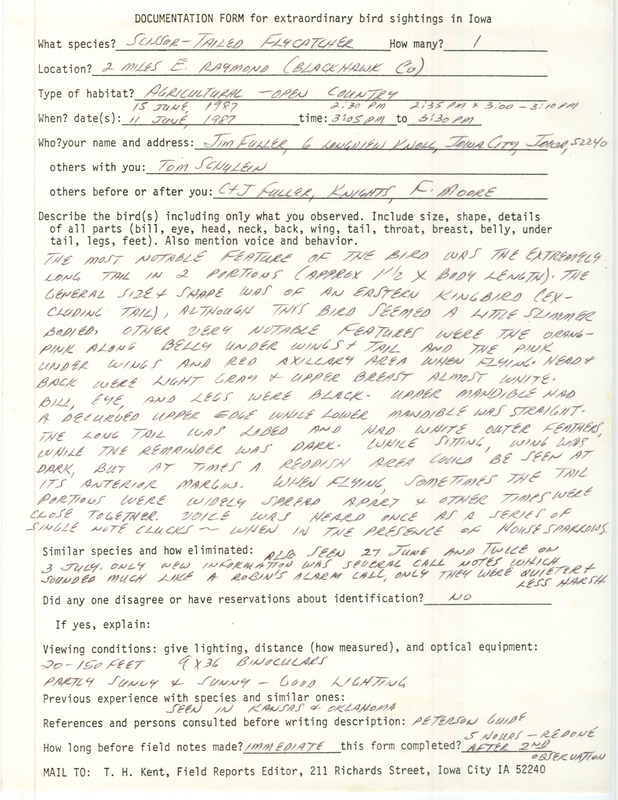 DOCUMENTATION FORM for extraordinary bird sightings in Iowa
What species? SCISSOR-TAILED FLYCATCHER How many? 1
Location? 2 MILES E. RAYMOND (BLACKHAWK CO)
Type of habitat? AGRICULTURAL - OPEN COUNTRY
15 JUNE, 1987 2:30 PM 2:35 PM & 3:00 - 3:10 PM
When? date(s): 11 JUNE, 1987 time: 3:05 PM to 3:30 PM
Who?your name and address: JIM FULLER, 6 LONGVIEW KNOLL, IOWA CITY, IOWA, 52240
others with you: TOM SCHULEIN
others before or after you: C+J FULLER, KNIGHTS, F. MOORE
Describe the bird(s) including only what you observed. Include size, shape, details
of all parts (bill, eye, head, neck, back, wing, tail, throat, breast, belly, under
tail, legs, feet). Also mention voice and behavior.
THE MOST NOTABLE FEATURE OF THE BIRD WAS THE EXTREMELY
LONG TAIL IN 2 PORTIONS (APPROX 1 1/2 X BODY LENGTH). THE
GENERAL SIZE & SHAPE WAS OF AN EASTERN KINGBIRD (EX-
CLUDING TAIL), ALTHOUGH THIS BIRD SEEMED A LITTLE SLIMMER
BODIED. OTHER VERY NOTABLE FEATURES WERE THE ORANG-
PINK ALONG BELLY UNDER WINGS & TAIL AND THE PINK
UNDER WINGS AND RED AXILLARY AREA WHEN FLYING. HEAD &
BACK WERE LIGHT GRAY & UPPER BREAST ALMOST WHITE.
BILL, EYE, AND LEGS WERE BLACK. UPPER MANDIBLE HAD
A DECURVED UPPER EDGE WHILE LOWER MANDIBLE WAS STRAIGHT.
THE LONG TAIL WAS LOBED AND HAD WHITE OUTER FEATHERS,
WHILE THE REMAINDER WAS DARK. WHILE SITTING, WING WAS
DARK, BUT AT TIMES A REDDISH AREA COULD BE SEEN AT
ITS ANTERIOR MARGIN. WHEN FLYING, SOMETIMES THE TAIL
PORTIONS WERE WIDELY SPREAD APART & OTHER TIMES WERE
CLOSE TOGETHER. VOICE WAS HEARD ONCE AS A SERIES OF
SINGLE NOTE CLUCKS ~ WHEN IN THE PRESENCE OF HOUSE SPARROWS.
Similar species and how eliminated: ALSO SEEN 27 JUNE AND TWICE ON
3 JULY. ONLY NEW INFORMATION WAS SEVERAL CALL NOTES WHICH
SOUNDED MUCH LIKE A ROBIN'S ALARM CALL, ONLY THEY WERE QUIETER &
LESS HARSH
Did any one disagree or have reservations about identification? NO
If yes, explain:
Viewing conditions: give lighting, distance (how measured), and optical equipment:
20-150 FEET 9X36 BINOCULARS
PARTLY SUNNY & SUNNY - GOOD LIGHTING
Previous experience with species and similar ones:
SEEN IN KANSAS & OKLAHOMA
References and persons consulted before writing description: PETERSON GUIDE
5 HOURS - REDONE
How long before field notes made? IMMEDIATE this form completed? AFTER 2ND
OBSERVATION
MAIL TO: T. H. Kent, Field Reports Editor, 211 Richards Street, Iowa City IA 52240